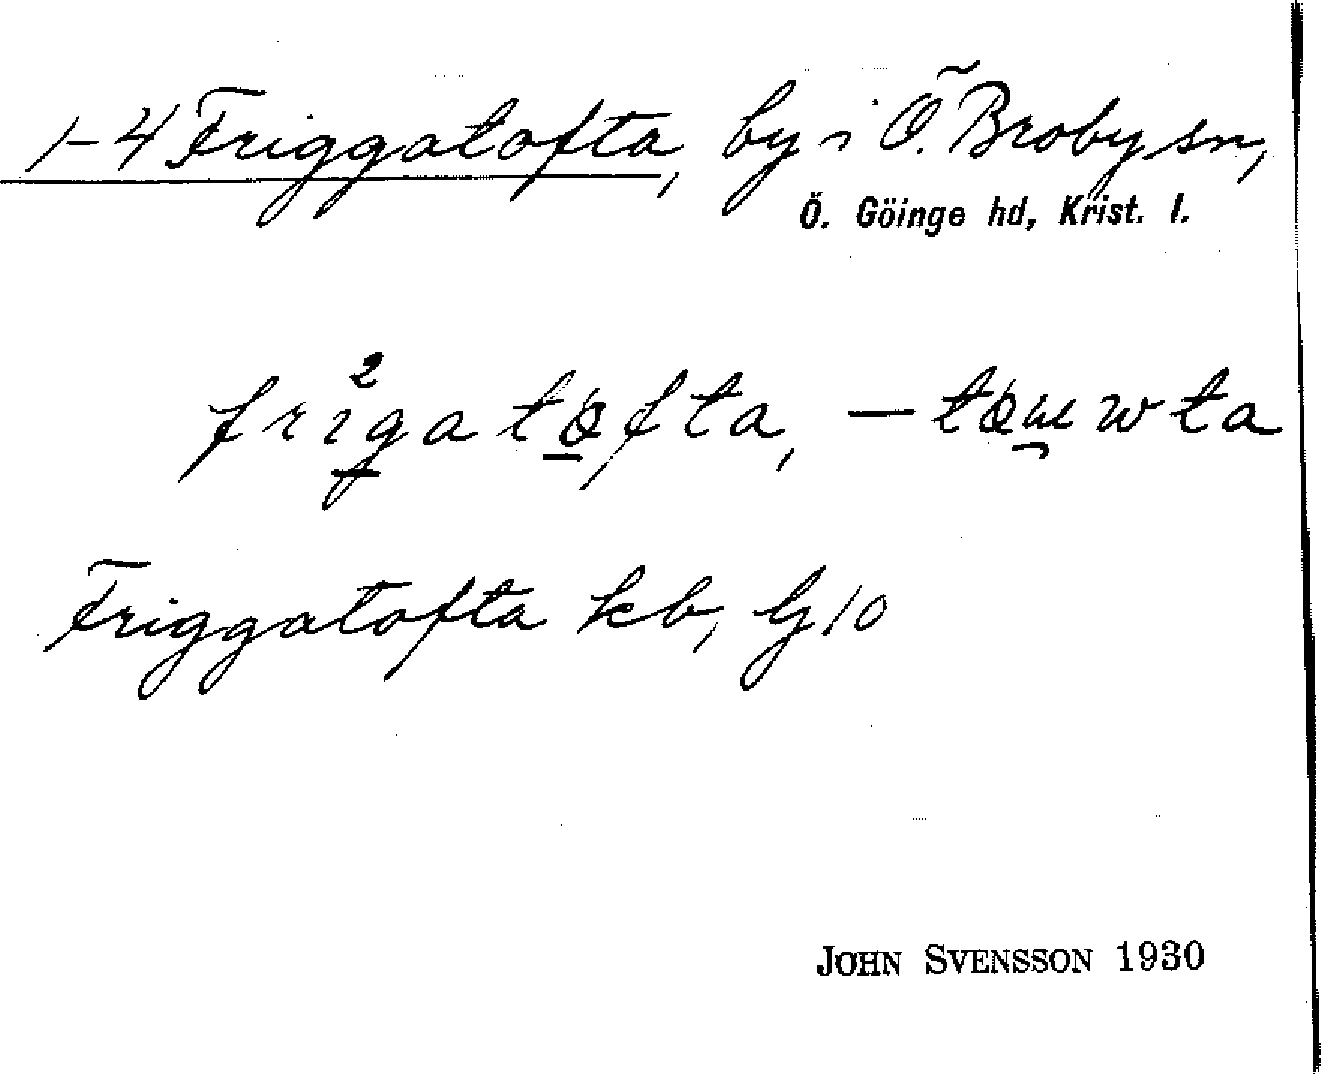 1-4 Friggatofta, by i Ö. Broby sn,
Ö. Göinge hd, Krist. l.
Friggatofta kb, G10
JOHN SVENSSON 1930